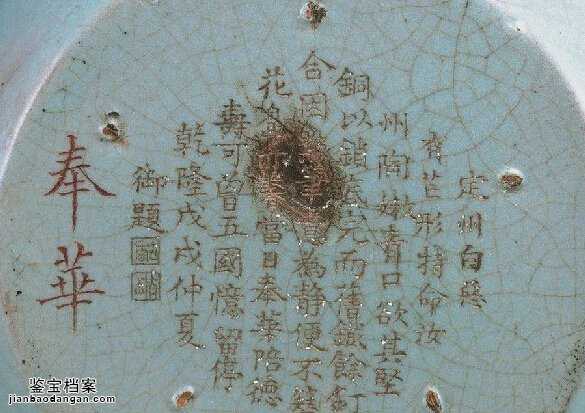 定州白惡
有芒形特命汝
州陶嫩青口欲其堅
銅以鎖底完而舊鐵餘釘
合因意為靜便不簪
花當日奉華陪德
壽可曾五國憶留停
乾隆戊戌仲夏
御題
奉華
鉴宝档案
jianbaodangan.com